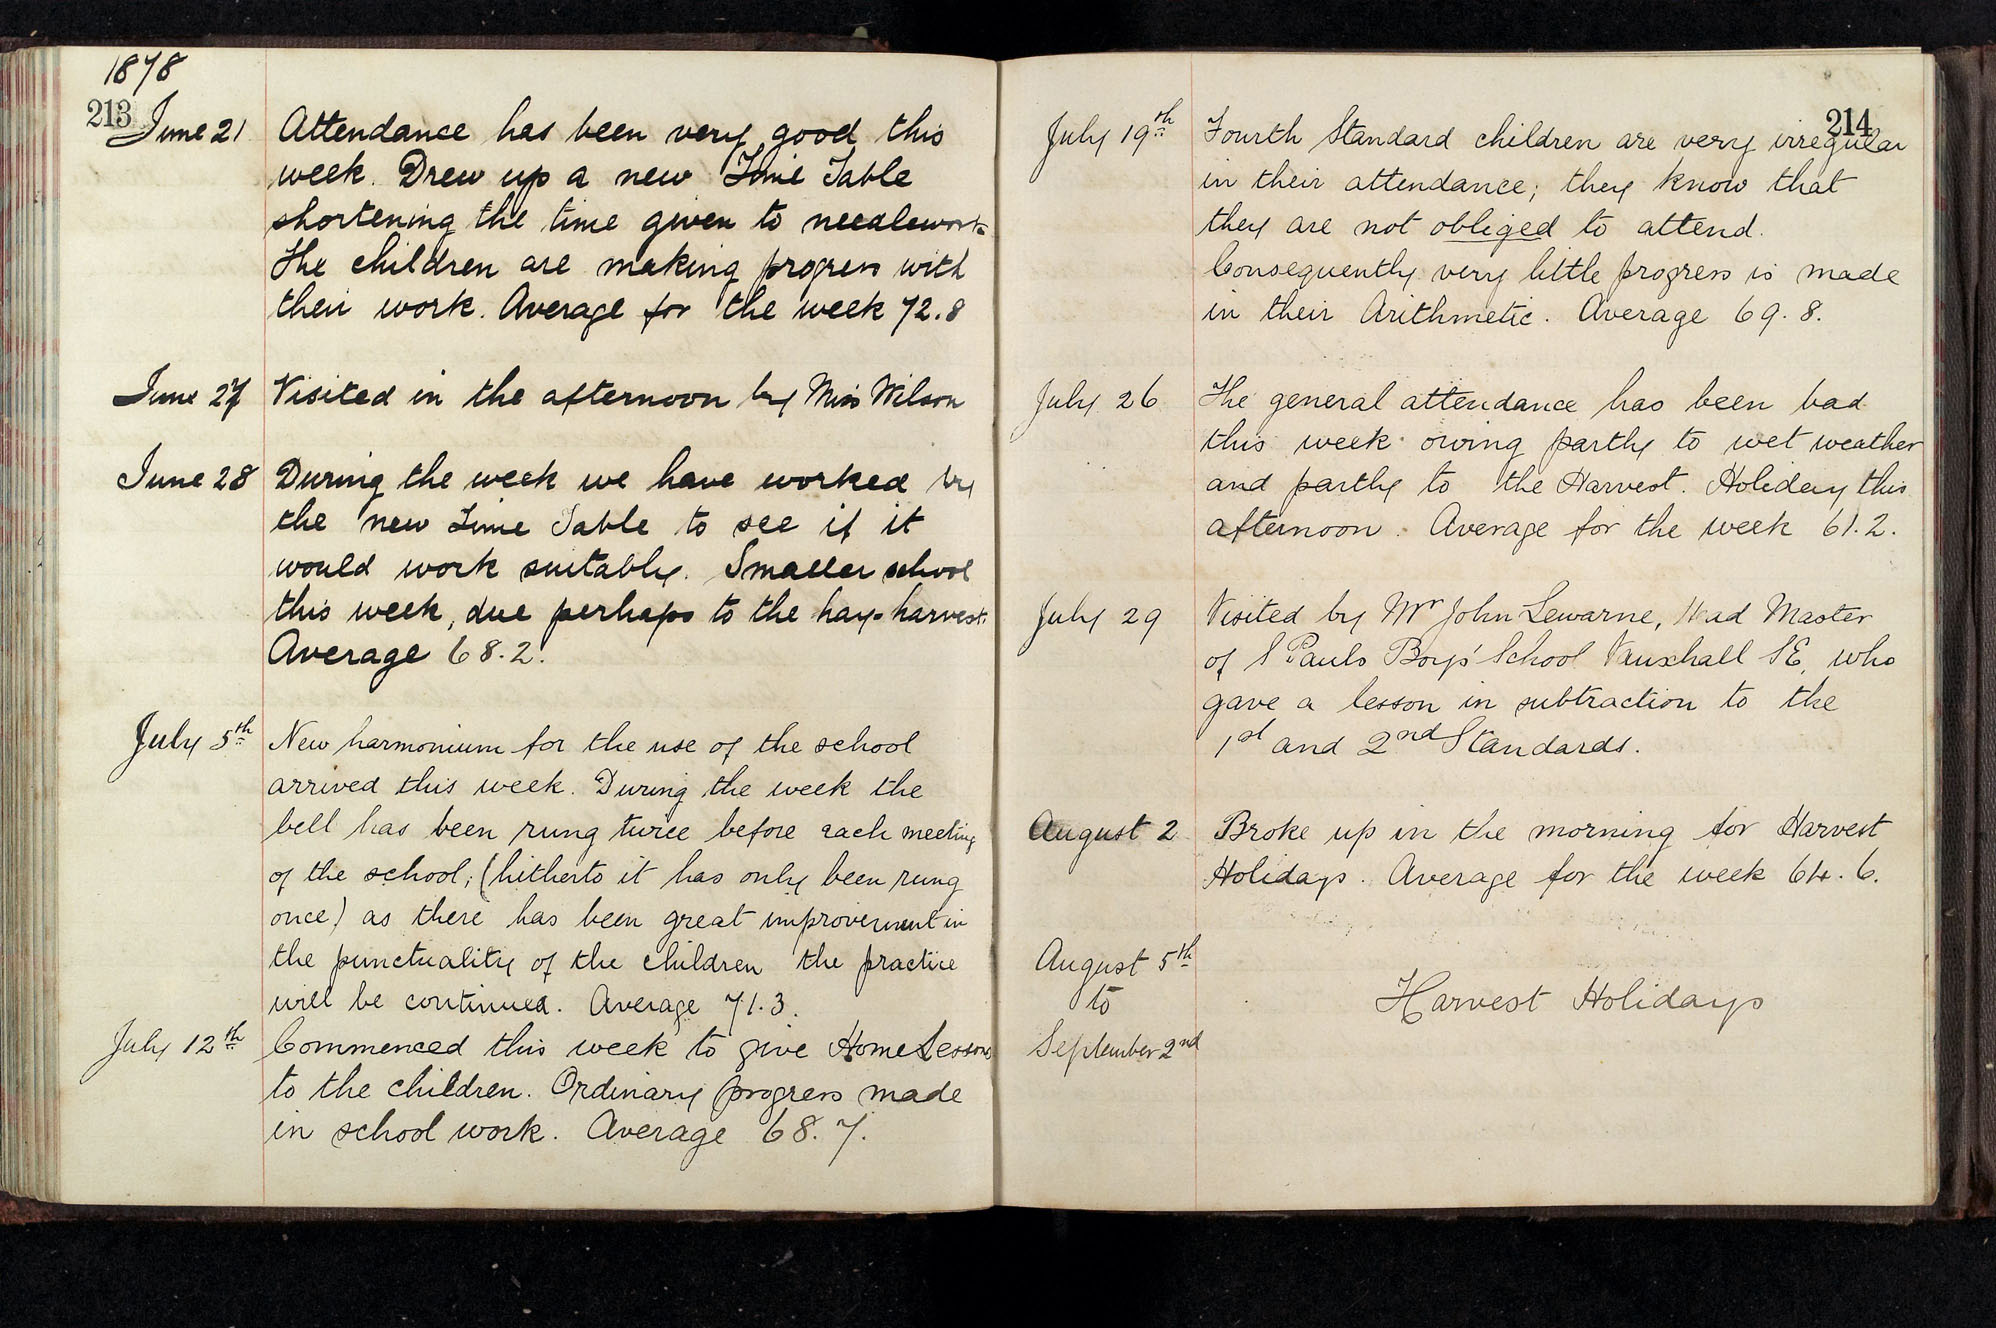 1878
213
June 21 Attendance has been very good this
week. Drew up a new Time Table
shortening the time given to needlework
The children are making progress with
their work. Average for the week 72.8
June 27 Visited in the afternoon by Miss Wilson
June 28 During the week we have worked by
the new Time Table to see if it
would work suitably. Smaller school
this week, due perhaps to the hay-harvest.
Average 68.2.
July 5th New harmonium for the use of the school
arrived this week. During the week the
bell has been rung twice before each meeting
of the school; (hitherto it has only been rung
once) as there has been great improvement in
the punctuality of the children the practice
will be continued. Average 71.3.
July 12th Commenced this week to give Home Lessons
to the children. Ordinary progress made
in school work. Average 68.7.
214
July 19th Fourth Standard children are very irregular
in their attendance; they know that
they are not obliged to attend.
Consequently very little progress is made
in their Arithmetic. Average 69.8.
July 26 The general attendance has been bad
this week owing partly to wet weather
and partly to the Harvest. Holiday this
afternoon. Average for the week 61.2.
July 29 Visited by Mr John Lewarne, Head Master
of S Pauls Boys' School Vauxhall SE, who
gave a lesson in subtraction to the
1st and 2nd Standards.
August 2 Broke up in the morning for Harvest
Holidays. Average for the week 64.6.
August 5th
to Harvest Holidays
September 2nd